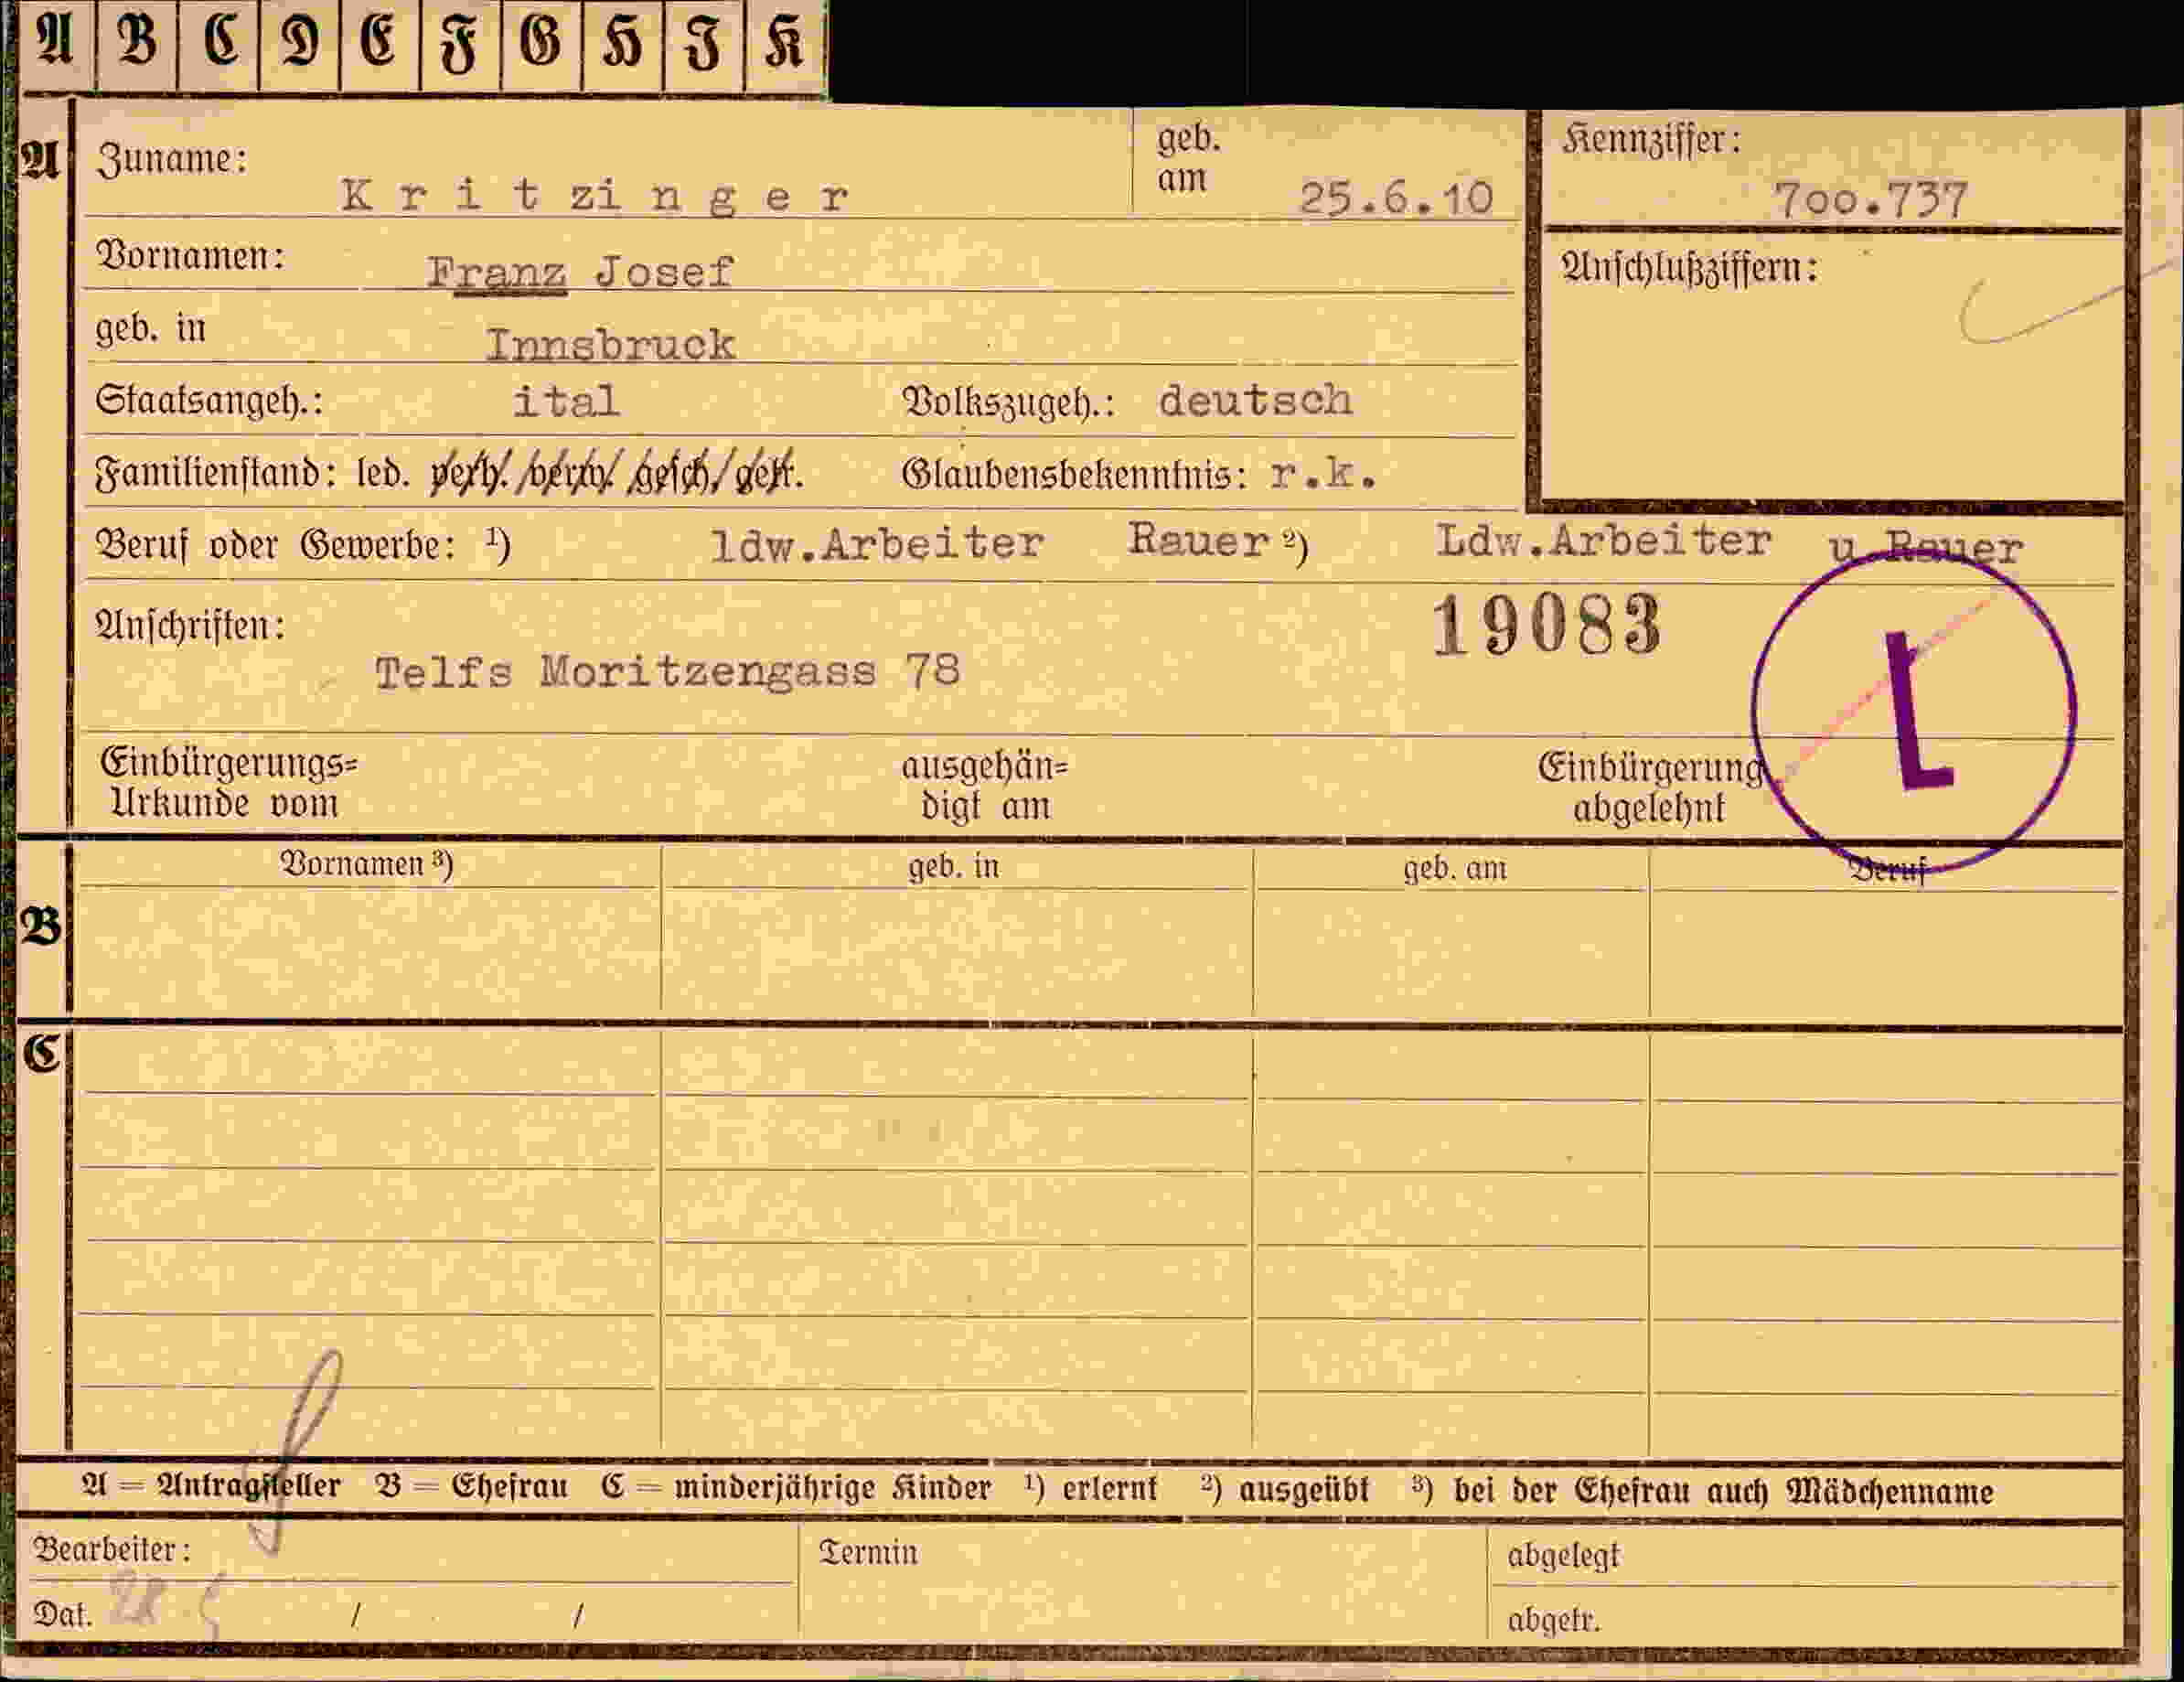 A B C D E F G H I K
A Zuname: K r i t zi n g e r geb. am 25.6.10 Kennziffer: 7oo.737
Vornamen: Franz Josef Anschlußziffern:
geb. in Innsbruck
Staatsangeh.: ital Volkszugeh.: deutsch
Familienstand: led. verh. verw. gesch. getr. Glaubensbekenntnis: r.k.
Beruf oder Gewerbe: ¹) ldw.Arbeiter Rauer ²) Ldw.Arbeiter u Rauer
Anschriften: 19083
Telfs Moritzengass 78
L
Einbürgerungs= ausgehän= Einbürgerung
Urkunde vom digt am abgelehnt
Vornamen ³) geb. in geb. am Beruf
B
C
A = Antragsteller B = Ehefrau C = minderjährige Kinder ¹) erlernt ²) ausgeübt ³) bei der Ehefrau auch Mädchenname
Bearbeiter: Termin abgelegt
Dat. 28 / / abgetr.